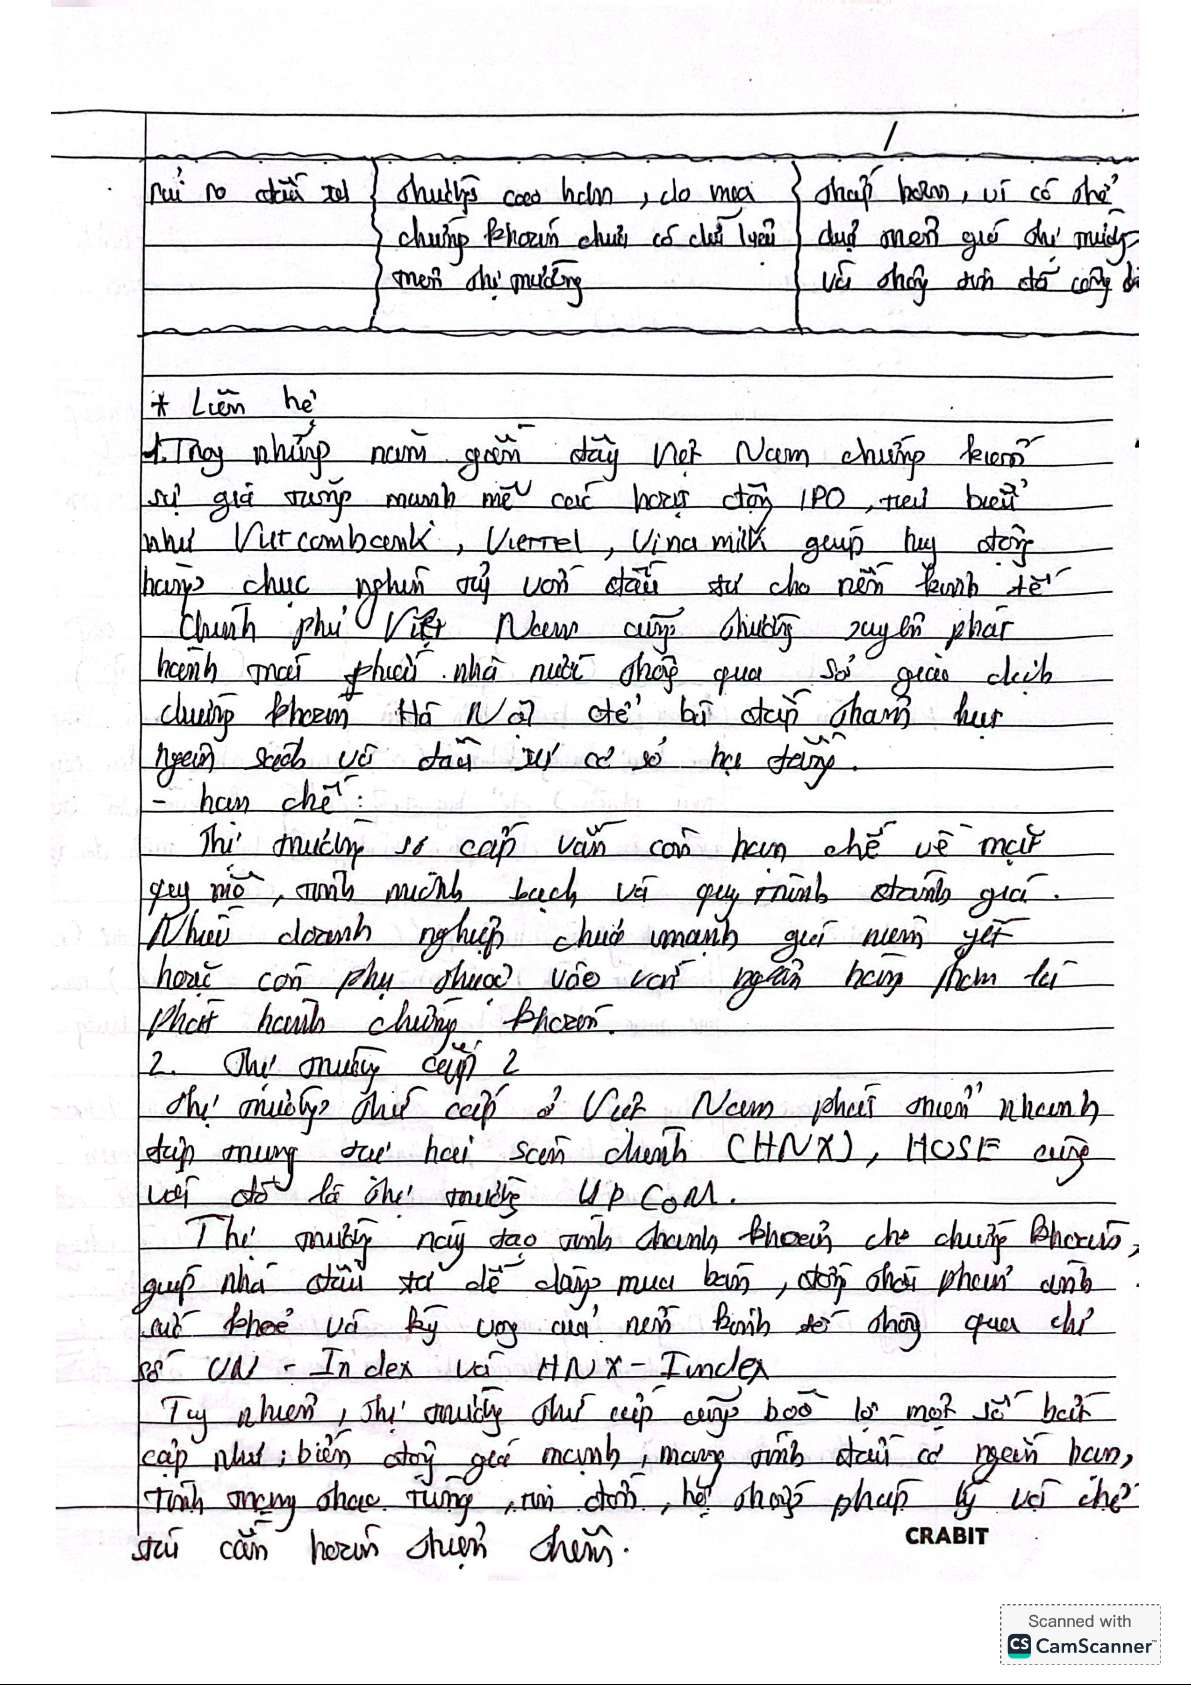 /
rủi ro đầu tư
thường cao hơn, do mọi
chứng khoán chưa có dữ liệu
trên thị trường
thấp hơn, vì có thể
dựa trên giá thị trường
và thông tin đã công
* Liên hệ
1. Trong những năm gần đây Việt Nam chứng kiến
sự gia tăng mạnh mẽ các hoạt động IPO, tiêu biểu
như Vietcombank, Viettel, Vinamilk giúp huy động
hàng chục nghìn tỷ vốn đầu tư cho nền kinh tế
Chính phủ Việt Nam cũng thường xuyên phát
hành trái phiếu nhà nước thông qua sở giao dịch
chứng khoán Hà Nội để bù đắp thâm hụt
ngân sách và đầu tư cơ sở hạ tầng.
- hạn chế:
Thị trường sơ cấp vẫn còn hạn chế về mặt
quy mô, tính minh bạch và quy trình định giá.
Nhiều doanh nghiệp chưa mạnh niêm yết
hoặc còn phụ thuộc vào vốn ngân hàng hơn là
phát hành chứng khoán.
2. Thị trường cấp 2
Thị trường thứ cấp ở Việt Nam phát triển nhanh
tập trung tại hai sàn chính (HNX), HOSE cùng
với đó là thị trường UPCoM.
Thị trường này tạo tính thanh khoản cho chứng khoán,
giúp nhà đầu tư dễ dàng mua bán, đồng thời phản ánh
sức khoẻ và kỳ vọng của nền kinh tế thông qua chỉ
số VN - Index và HNX - Index
Tuy nhiên, thị trường thứ cấp cũng bộc lộ một số bất
cập như: biến động giá mạnh, mang tính đầu cơ ngắn hạn,
tình trạng thao túng, tin đồn, hệ thống pháp lý và chế
tài cần hoàn thiện thêm.
CRABIT
Scanned with
CS CamScanner